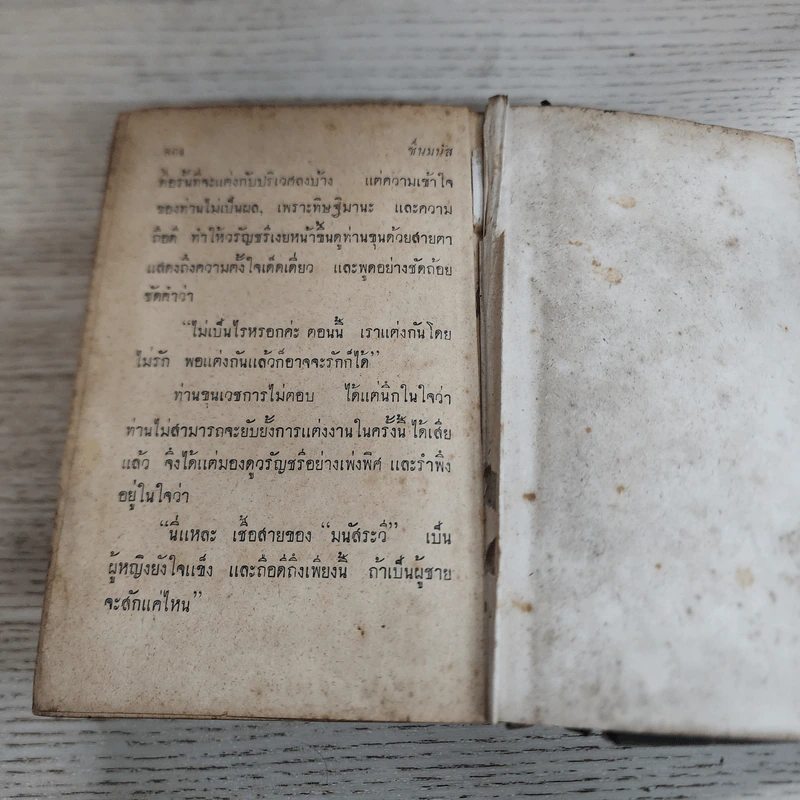 ชื่นมนัส
ต่อรันที่จะแต่งกับปริเวศลงบ้าง แต่ความเข้าใจ
ของท่านไม่เป็นผล, เพราะทิษฐิมานะ และความ
ถือดี ทำให้วรัญชรีเงยหน้าขึ้นดูท่านขุนด้วยสายตา
แสดงถึงความตั้งใจเด็ดเดี่ยว และพูดอย่างชัดถ้อย
ชัดคำว่า
“ไม่เป็นไรหรอกค่ะ ตอนนี้ เราแต่งกันโดย
ไม่รัก พอแต่งกันแล้วก็อาจจะรักก็ได้”
ท่านขุนเวชการไม่ตอบ ได้แต่นึกในใจว่า
ท่านไม่สามารถจะยับยั้งการแต่งงานในครั้งนี้ได้เสีย
แล้ว จึงได้แต่มองดูวรัญชรีอย่างเพ่งพิศ และรำพึง
อยู่ในใจว่า
“นี่แหละ เชื้อสายของ “มนัสระวี” เป็น
ผู้หญิงยังใจแข็ง และถือดีถึงเพียงนี้ ถ้าเป็นผู้ชาย
จะสักแค่ไหน”